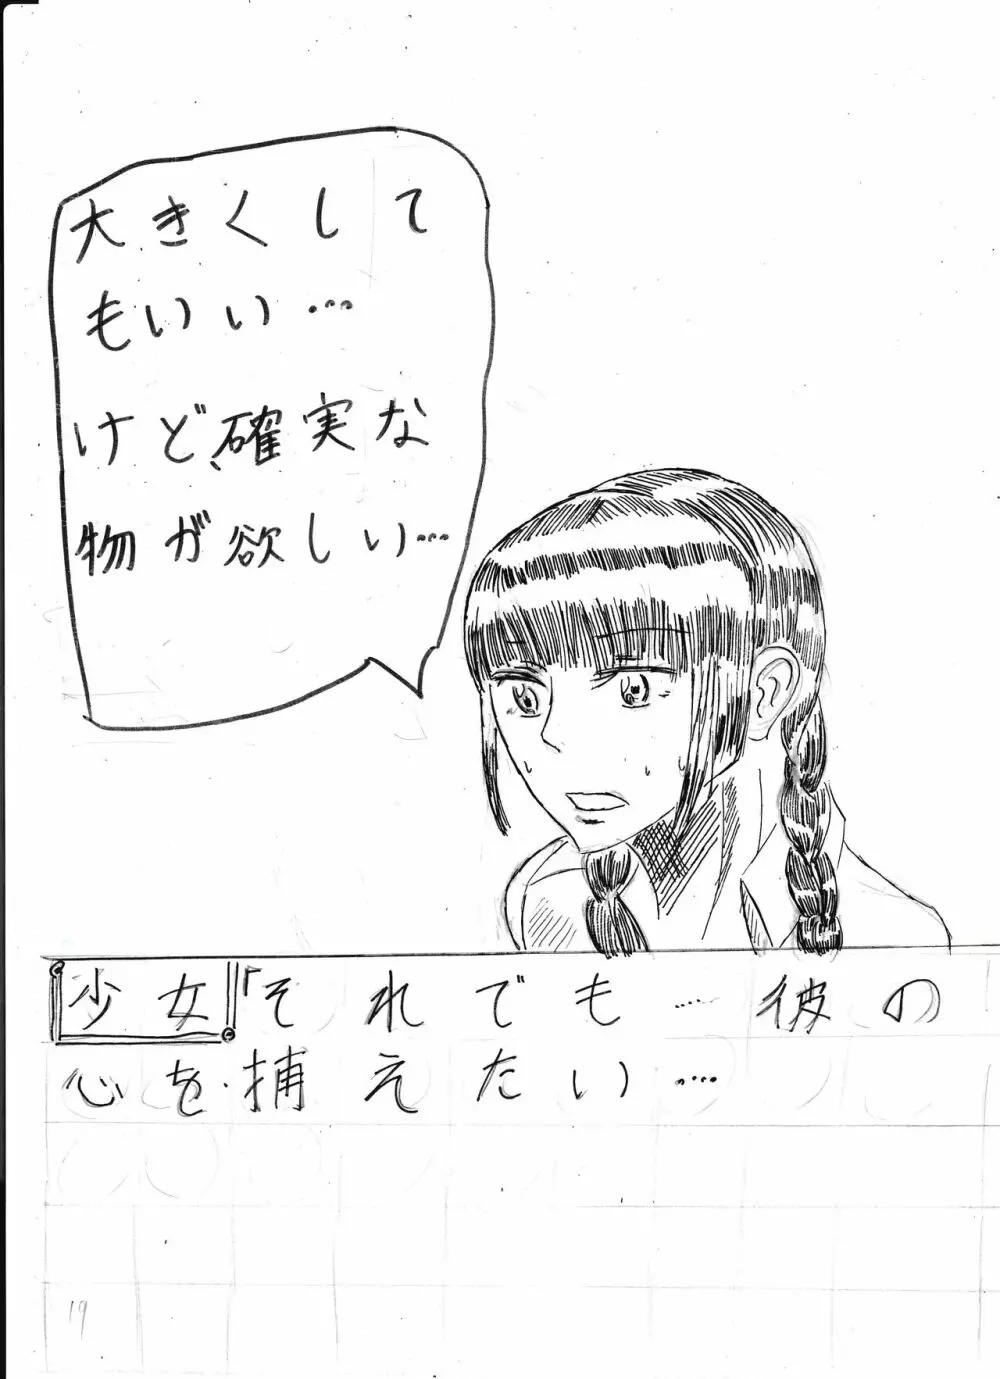 大きくして
もいい…
けど、確実な
物が欲しい…
少女「それでも…彼の
心を捕えたい…
19